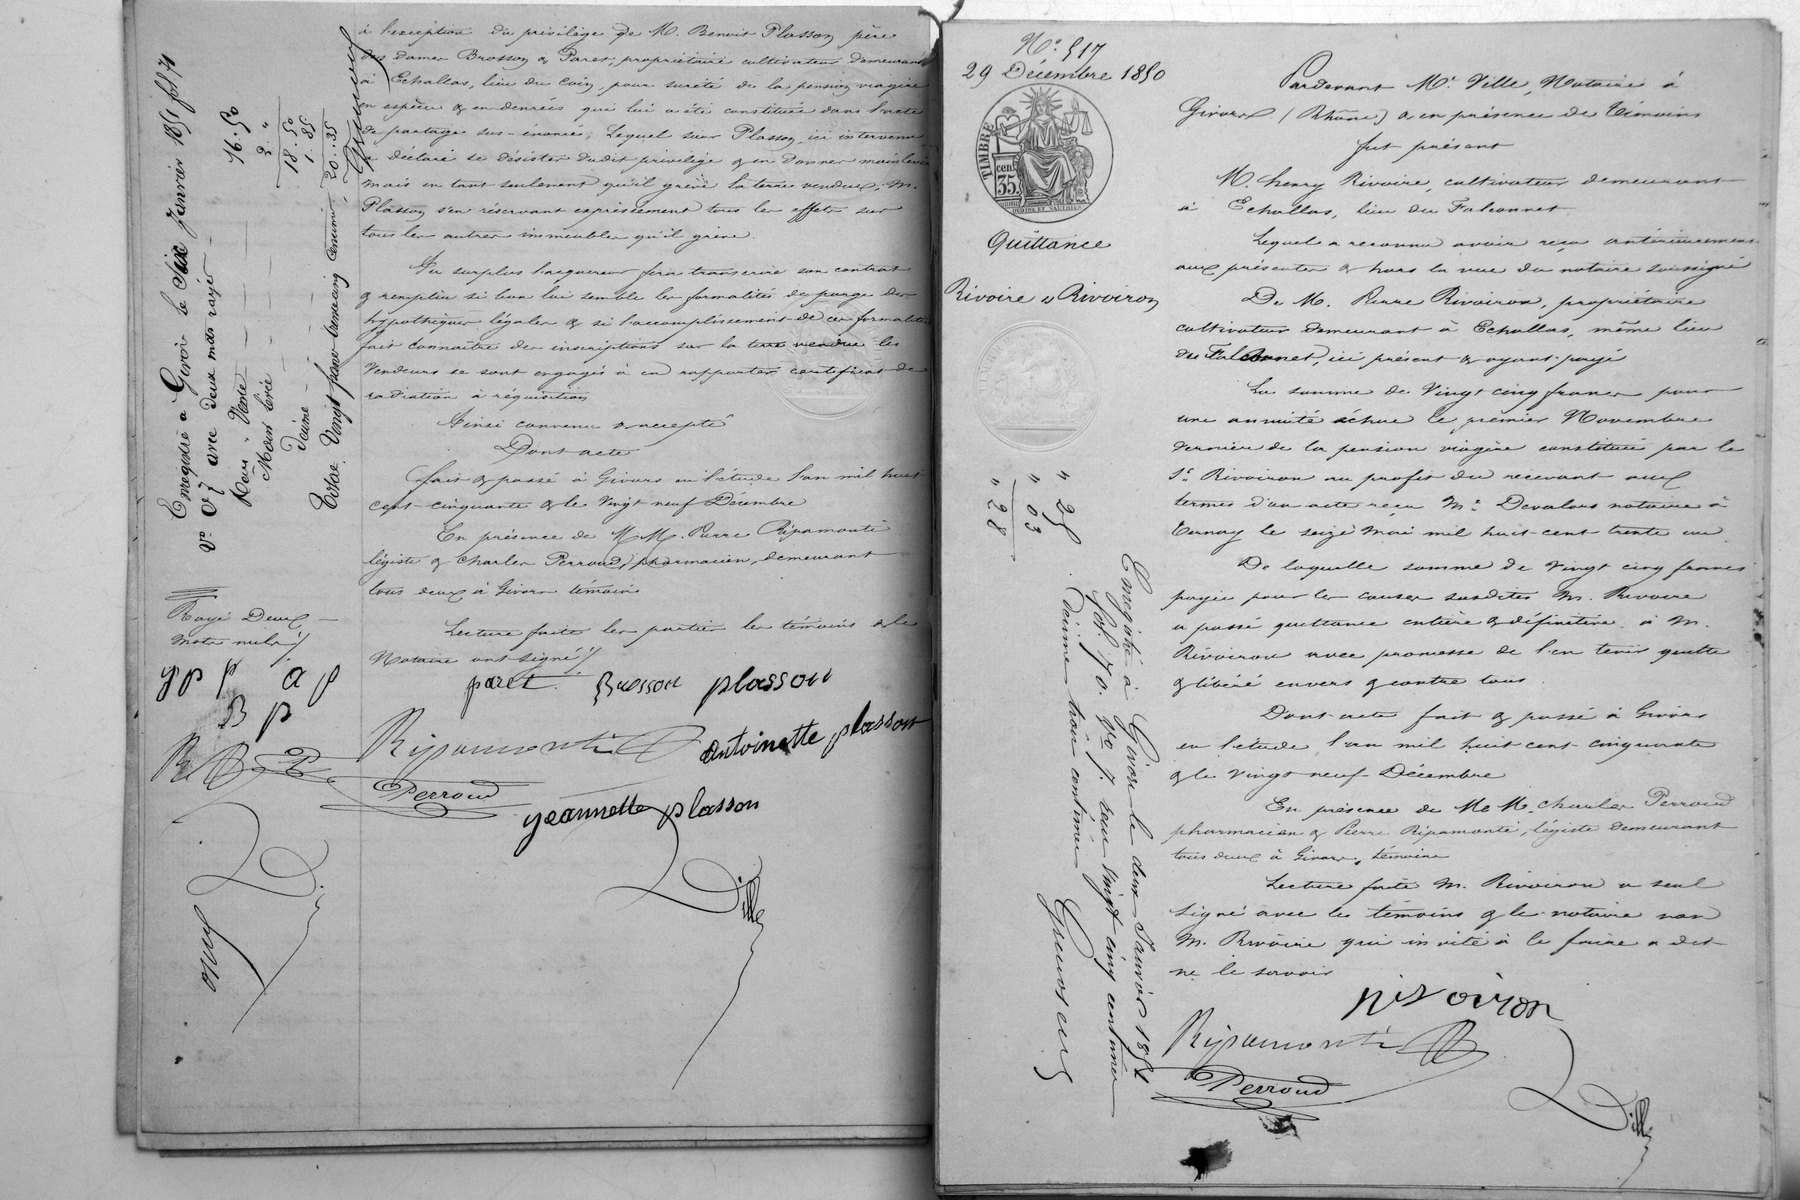 à l'exception du privilège de M. Benoit Plasson père
des dames Brosson & Paret, propriétaire cultivateur demeurant
à Echallas, lieu du Coin, pour sureté de la pension viagère
en espèce & en denrées qui lui a été constituée dans l'acte
de partage sus-énoncé; lequel sieur Plasson, ici intervenu
a déclaré se désister dudit privilège & en donner mainlevée
mais en tant seulement qu'il grève la terre vendue, M.
Plasson s'en réservant expressément tous les effets sur
tous les autres immeubles qu'il grève.
Au surplus l'acquéreur fera transcrire son contrat
& remplira si bon lui semble les formalités de purge des
hypothèques légales & si l'accomplissement de ces formalités
fait connaître des inscriptions sur la terre vendue les
Vendeurs se sont engagés à en rapporter certificat de
radiation à réquisition
Ainsi convenu & accepté
Dont acte
Fait & passé à Givors en l'étude l'an mil huit
cent cinquante & le Vingt neuf Décembre
En présence de MM. Pierre Ripamonti
légiste & Charles Perroud, pharmacien, demeurant
tous deux à Givors témoins
Lecture faite les parties les témoins & le
Notaire ont signé
paret Brosson plasson
Ripamonti antoinette plasson
Perroud
jeannette plasson
Dille
Enregistré à Givors le Six Janvier 1851 fol. 71
V° C. 7 avec deux mots rayés
Reçu: Vente 16.50
Main levée 2. "
18.50
Décime 1.85
Total Vingt francs trente cinq centimes 20.35
Rayé Deux
mots nuls
gp p a p
B p
R
N° 517
29 Décembre 1850
TIMBRE
35 cen.
Quittance
Rivoire à Rivoiron
" 25
" 03
" 28
Enregistré à Givors le deux Janvier 1851
fol. 70. V° C. 7. reçu vingt cinq centimes
décime trois centimes
Pardevant Me Ville, Notaire à
Givors (Rhône) & en présence de témoins
fut présent
M. henry Rivoire, cultivateur demeurant
à Echallas, lieu du Falconnet
Lequel a reconnu avoir reçu antérieurement
aux présentes & hors la vue du notaire soussigné
De M. Pierre Rivoiron, propriétaire
cultivateur demeurant à Echallas, même lieu
du Falconnet, ici présent & ayant payé
La somme de Vingt cinq francs pour
une annuité échue le premier Novembre
dernier de la pension viagère constituée par le
Sr Rivoiron au profit du recevant aux
termes d'un acte reçu Me Devalors notaire à
Ternay le seize Mai mil huit cent trente un
De laquelle somme de vingt cinq francs
payée pour les causes susdites M. Rivoire
a passé quittance entière & définitive à M.
Rivoiron avec promesse de l'en tenir quitte
& libéré envers & contre tous.
Dont acte fait & passé à Givors
en l'étude l'an mil huit cent cinquante
& le vingt neuf Décembre
En présence de MM. Charles Perroud
pharmacien & Pierre Ripamonti, légiste demeurant
tous deux à Givors, témoins
Lecture faite M. Rivoiron a seul
signé avec les témoins & le notaire non
M. Rivoire qui invité à le faire a dit
ne le savoir
rivoiron
Ripamonti
Perroud
Dille